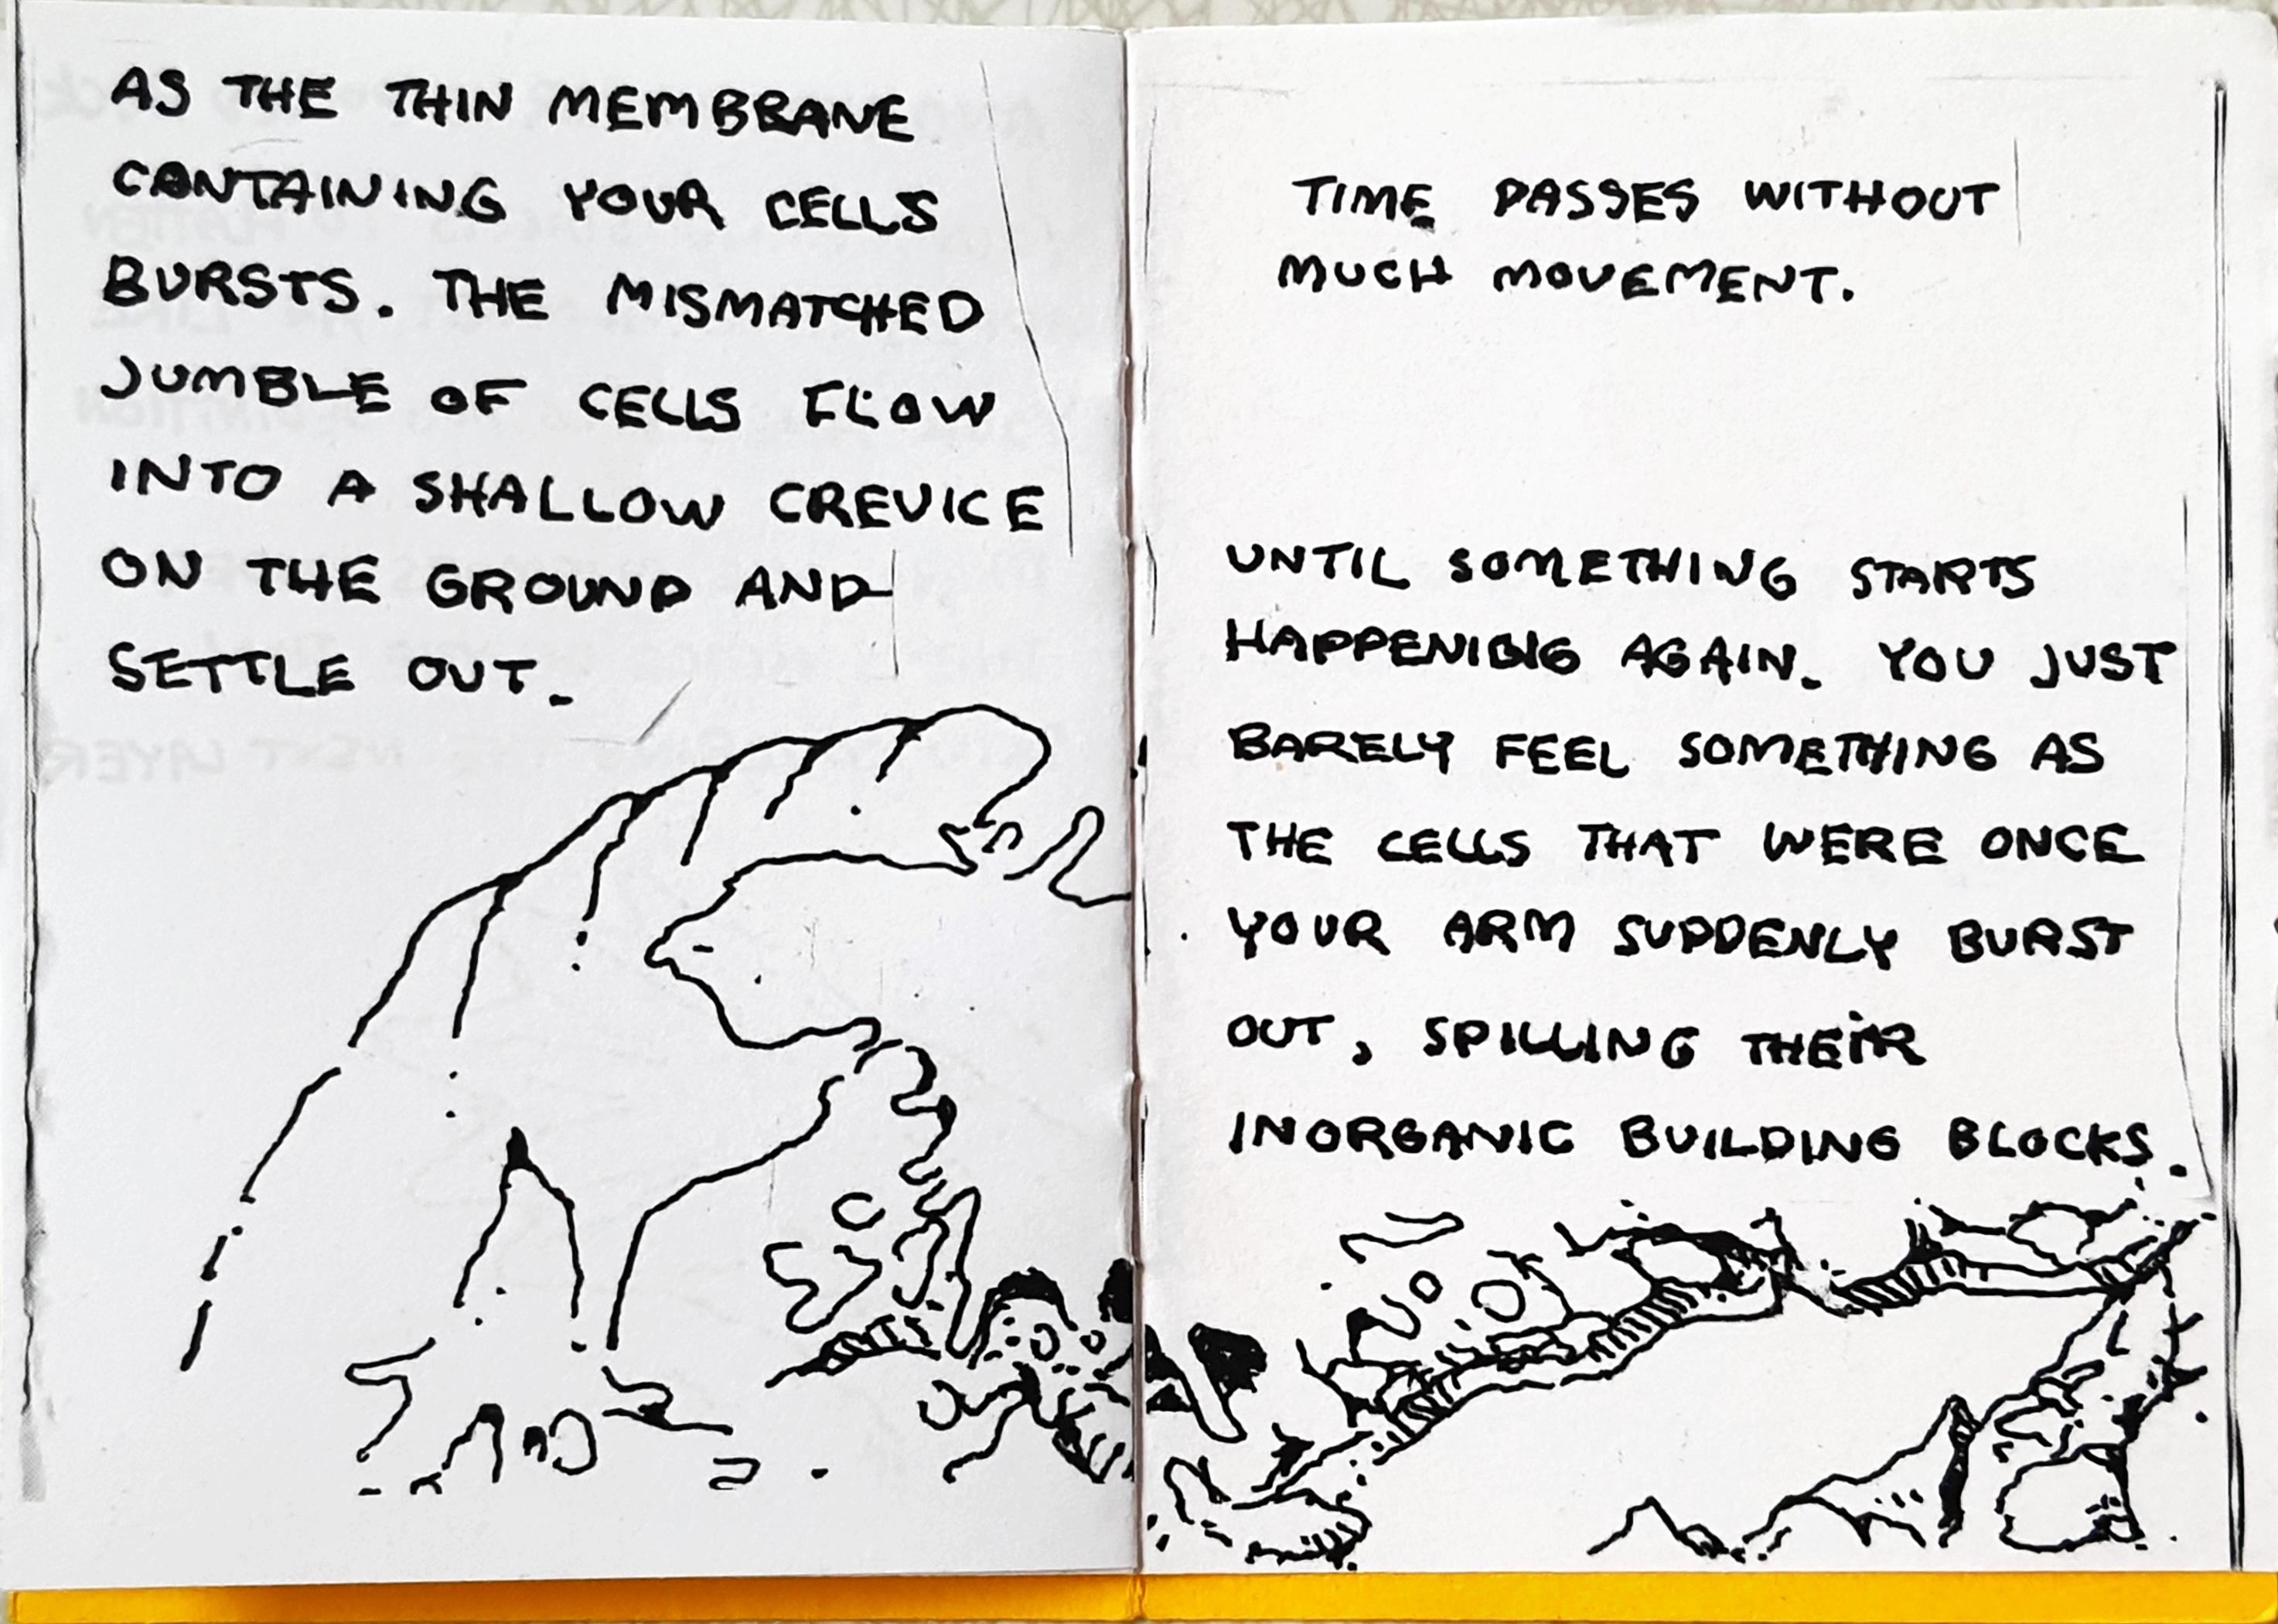 AS THE THIN MEMBRANE
CONTAINING YOUR CELLS
BURSTS. THE MISMATCHED
JUMBLE OF CELLS FLOW
INTO A SHALLOW CREVICE
ON THE GROUND AND
SETTLE OUT.
TIME PASSES WITHOUT
MUCH MOVEMENT.
UNTIL SOMETHING STARTS
HAPPENING AGAIN. YOU JUST
BARELY FEEL SOMETHING AS
THE CELLS THAT WERE ONCE
YOUR ARM SUDDENLY BURST
OUT, SPILLING THEIR
INORGANIC BUILDING BLOCKS.